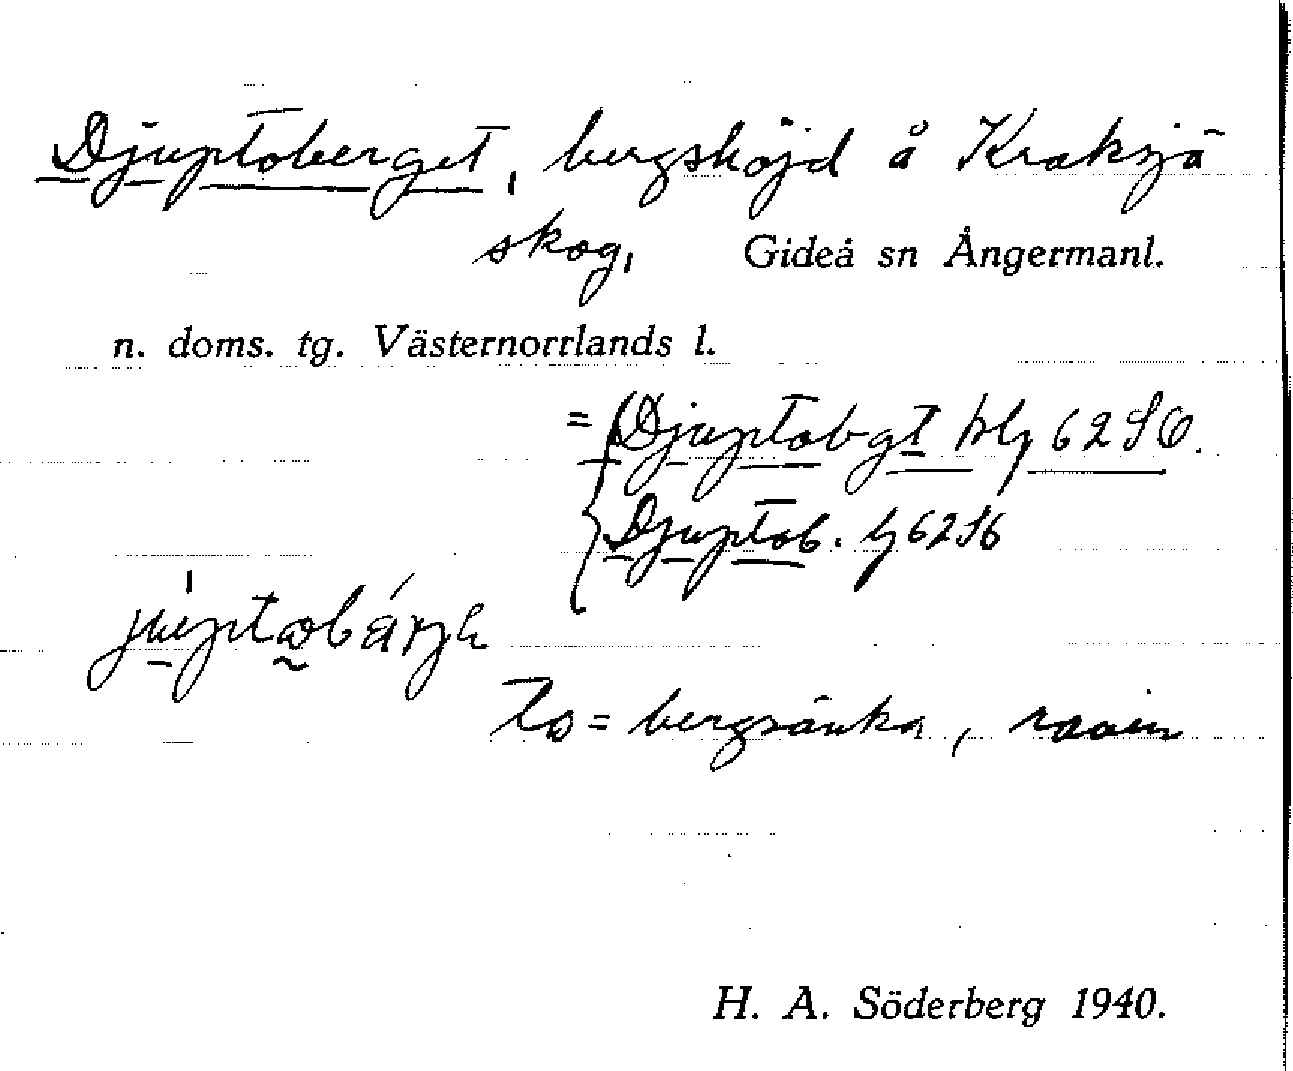 Djuptoberget, bergshöjd å Kraksjö
skog, Gideå sn Ångermanl.
n. doms. tg. Västernorrlands l.
= Djuptobgt
Djuptob.
To = bergsänka, ravin
H. A. Söderberg 1940.